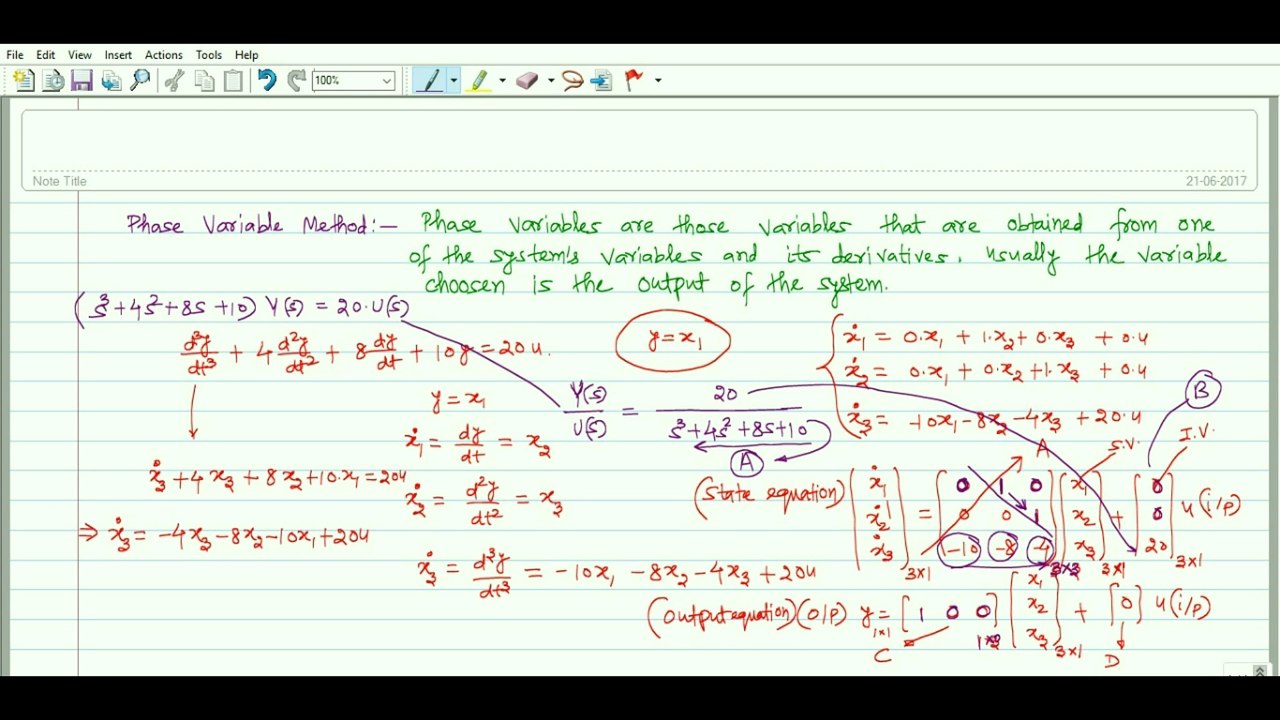 File Edit View Insert Actions Tools Help
100%
Note Title
21-06-2017
Phase Variable Method:- Phase variables are those variables that are obtained from one
of the system's variables and its derivatives. usually the variable
choosen is the output of the system.
(s³+4s²+8s+10) Y(s) = 20.U(s)
d³y/dt³ + 4 d²y/dt² + 8 dy/dt + 10y = 20u.
y = x₁
ẋ₁ = dy/dt = x₂
ẋ₃ + 4x₃ + 8x₂ + 10.x₁ = 20u
ẋ₂ = d²y/dt² = x₃
⇒ ẋ₃ = -4x₃ - 8x₂ - 10x₁ + 20u
ẋ₃ = d³y/dt³ = -10x₁ - 8x₂ - 4x₃ + 20u
y = x₁
Y(s)/U(s) = 20/(s³+4s²+8s+10)
A
ẋ₁ = 0.x₁ + 1.x₂ + 0.x₃ + 0.u
ẋ₂ = 0.x₁ + 0.x₂ + 1.x₃ + 0.u
ẋ₃ = -10x₁ - 8x₂ - 4x₃ + 20.u
B
A
S.V.
I.V.
(State equation) [ẋ₁ ẋ₂ ẋ₃] 3×1 = [0 1 0
0 0 1
-10 -8 -4] 3×3 [x₁ x₂ x₃] 3×1 + [0 0 20] 3×1 u (i/p)
(Output equation) (O/P) y = [1 0 0] [x₁ x₂ x₃] 3×1 + [0] u (i/p)
1×1
C
D